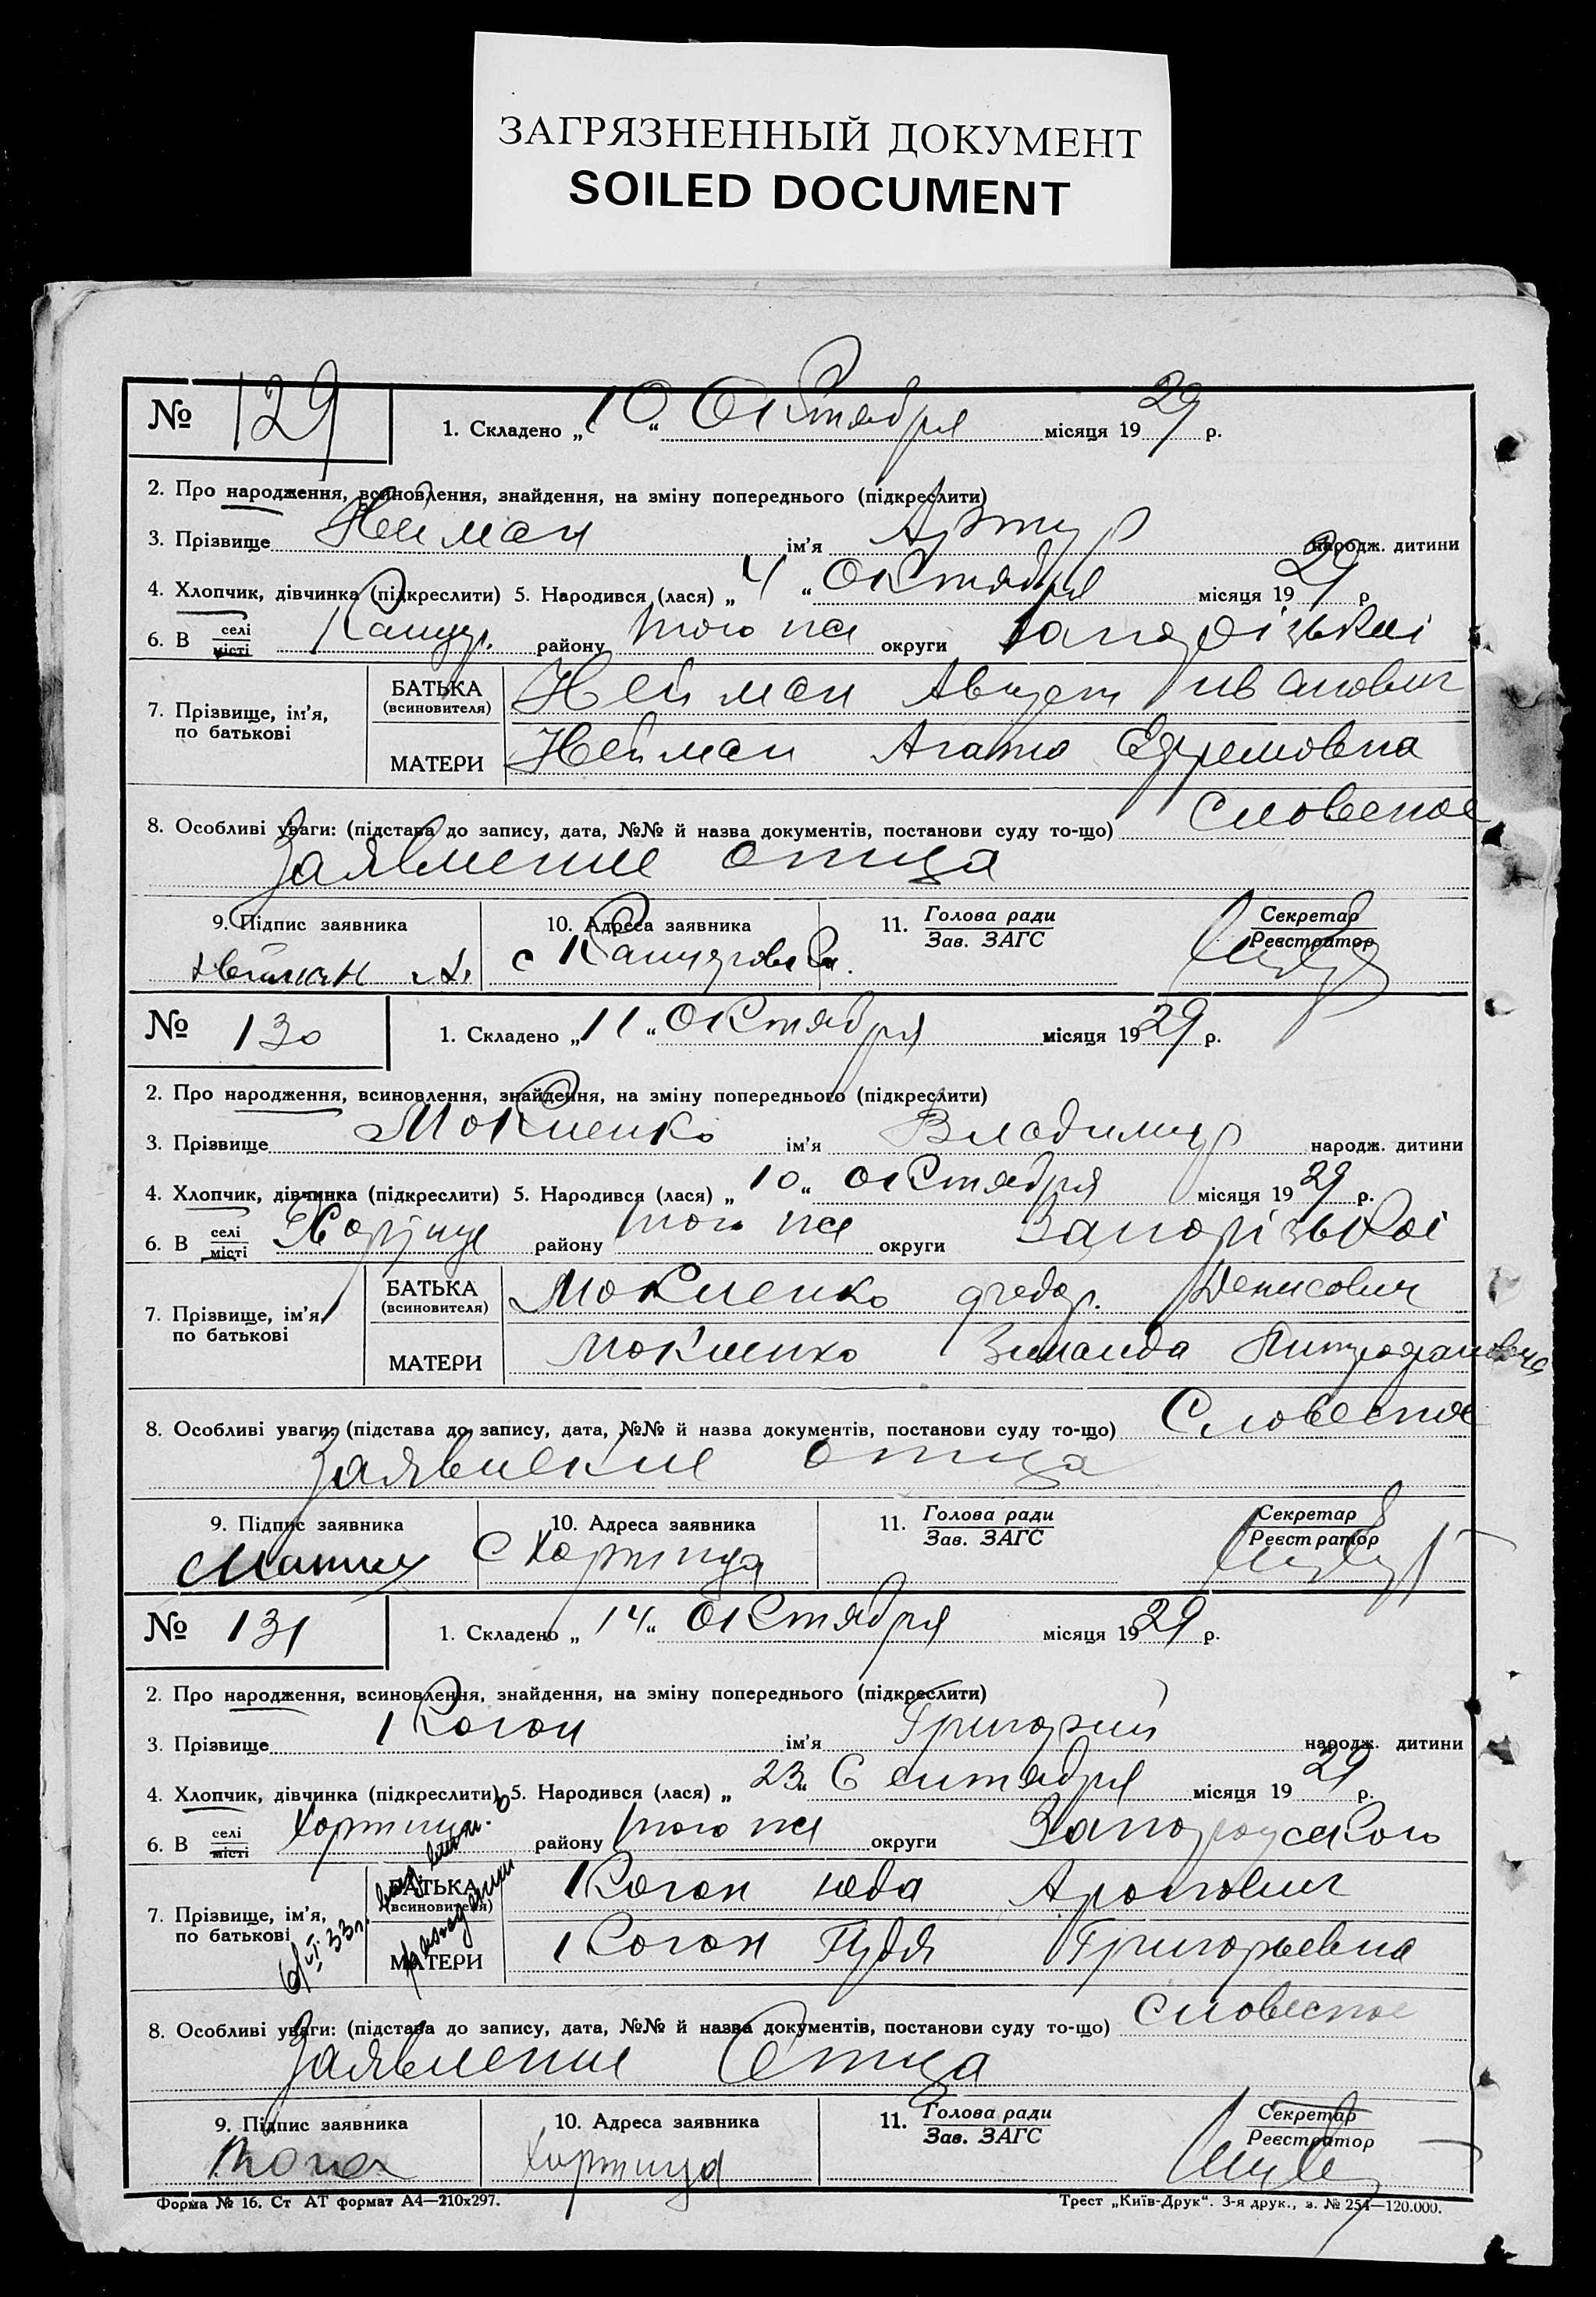 ЗАГРЯЗНЕННЫЙ ДОКУМЕНТ
SOILED DOCUMENT
№ 129
1. Складено „10“ Октября місяця 1929 р.
2. Про народження, всиновлення, знайдення, на зміну попереднього (підкреслити)
3. Прізвище Нейман ім’я Артур народж. дитини
4. Хлопчик, дівчинка (підкреслити) 5. Народився (лася) „4“ Октября місяця 1929 р.
6. В селі місті району того же округи Запорізької
7. Прізвище, ім’я, по батькові
БАТЬКА (всиновителя) Нейман Август Иванович
МАТЕРИ Нейман Агата Ефремовна
8. Особливі уваги: (підстава до запису, дата, №№ й назва документів, постанови суду то-що) Словесное
Заявление отца
9. Підпис заявника 10. Адреса заявника 11. Голова ради Зав. ЗАГС Секретар Реєстратор
Нейман А. с
№ 130
1. Складено „11“ Октября місяця 1929 р.
2. Про народження, всиновлення, знайдення, на зміну попереднього (підкреслити)
3. Прізвище Мокиенко ім’я Владимир народж. дитини
4. Хлопчик, дівчинка (підкреслити) 5. Народився (лася) „10“ Октября місяця 1929 р.
6. В селі місті Хортице району того же округи Запорізької
7. Прізвище, ім’я, по батькові
БАТЬКА (всиновителя) Мокиенко Федор. Денисович
МАТЕРИ Мокиенко Зинаида
8. Особливі уваги: (підстава до запису, дата, №№ й назва документів, постанови суду то-що) Словесное
Заявление отца
9. Підпис заявника 10. Адреса заявника 11. Голова ради Зав. ЗАГС Секретар Реєстратор
С Хортица
№ 131
1. Складено „14“ Октября місяця 1929 р.
2. Про народження, всиновлення, знайдення, на зміну попереднього (підкреслити)
3. Прізвище Коган ім’я Григорий народж. дитини
4. Хлопчик, дівчинка (підкреслити) 5. Народився (лася) „23“ Сентября місяця 1929 р.
6. В селі місті Хортица району того же округи
7. Прізвище, ім’я, по батькові
БАТЬКА (всиновителя) Коган Юда Аронович
МАТЕРИ Коган Григорьевна
8. Особливі уваги: (підстава до запису, дата, №№ й назва документів, постанови суду то-що) Словесное
Заявление Отца
9. Підпис заявника 10. Адреса заявника 11. Голова ради Зав. ЗАГС Секретар Реєстратор
Хортица
Форма № 16. Ст АТ формат А4—210х297. Трест „Київ-Друк“. 3-я друк., з. № 254—120.000.